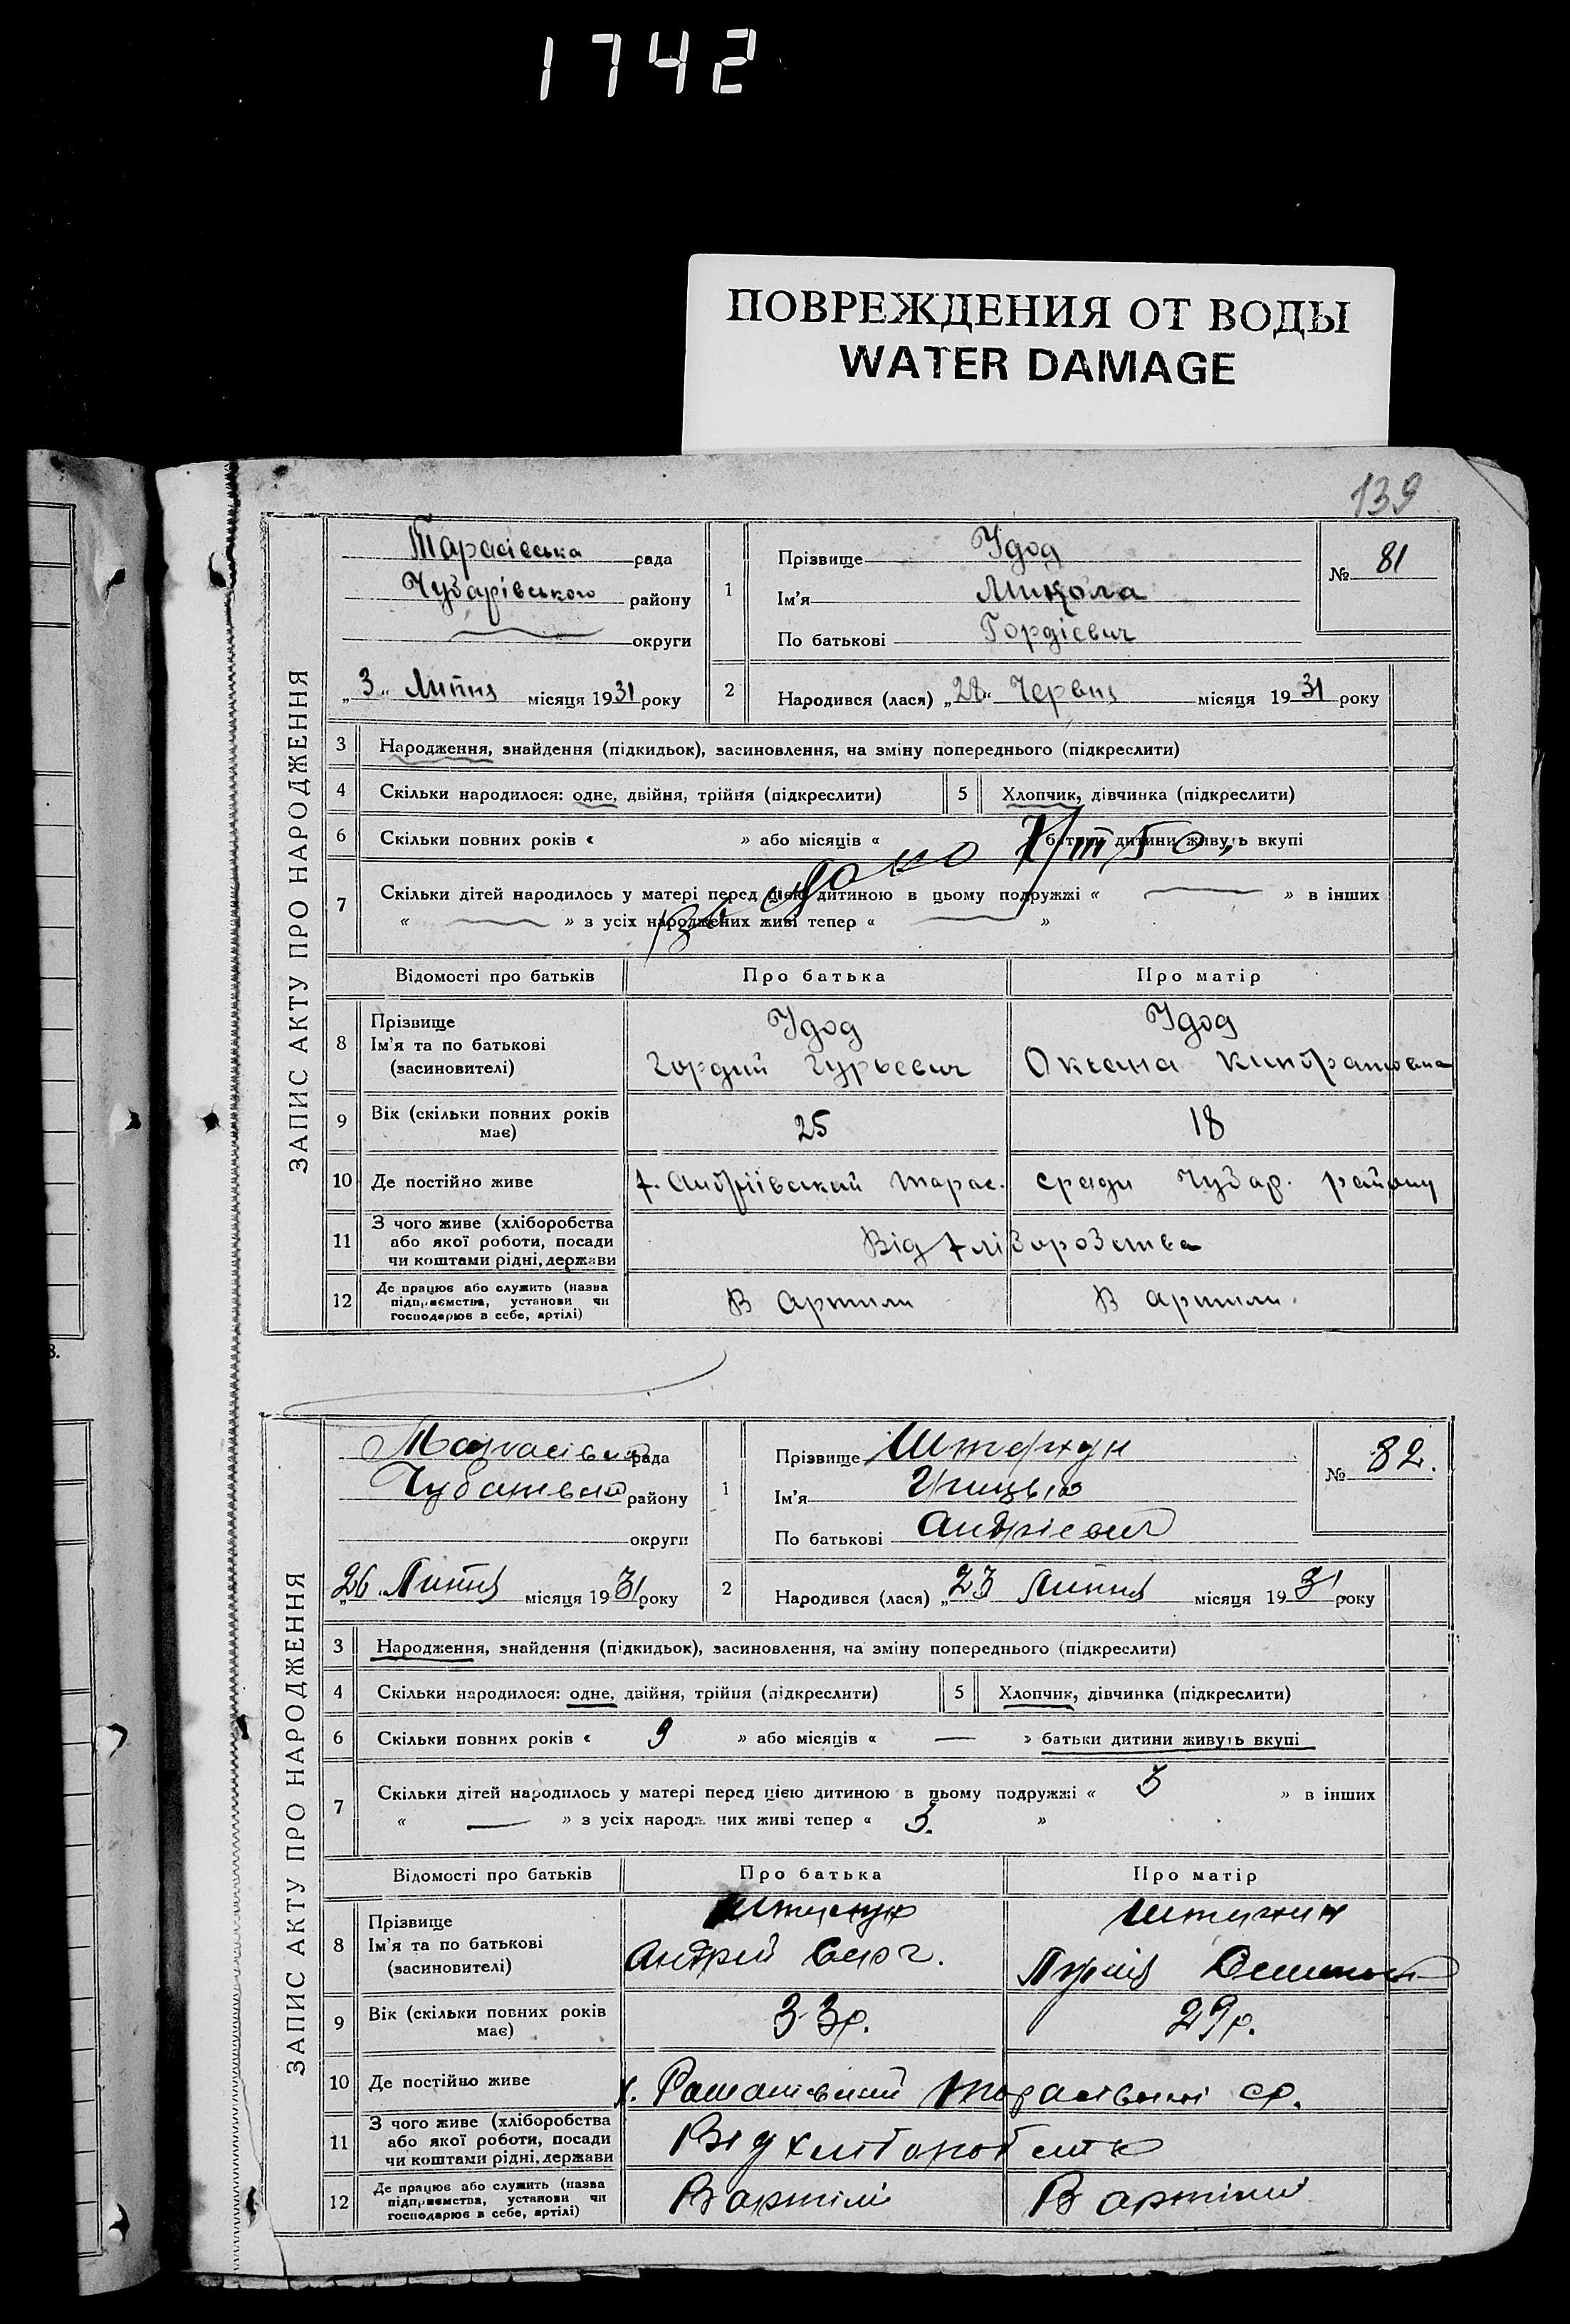 1742
ПОВРЕЖДЕНИЯ ОТ ВОДЫ
WATER DAMAGE
139
ЗАПИС АКТУ ПРО НАРОДЖЕННЯ
Тарасівська рада
Чубарівського району
округи
„3“ Липня місяця 1931 року
1
Прізвище Удод
Ім'я Микола
По батькові Гордієвич
№ 81
2
Народився (лася) „28“ Червня місяця 1931 року
3 Народження, знайдення (підкидьок), засиновлення, на зміну попереднього (підкреслити)
4 Скільки народилося: одне, двійня, трійня (підкреслити)
5 Хлопчик, дівчинка (підкреслити)
6 Скільки повних років « » або місяців « батьки дитини живуть вкупі
7 Скільки дітей народилось у матері перед цією дитиною в цьому подружжі « — » в інших
« — » з усіх народжених живі тепер « — »
Відомості про батьків Про батька Про матір
8 Прізвище
Ім'я та по батькові
(засиновителі)
Удод
Гордий Гурьевич
Удод
Оксана Киндратовна
9 Вік (скільки повних років має)
25
18
10 Де постійно живе
х. Андріівський Тарас. сради Чубар. району
11 З чого живе (хліборобства
або якої роботи, посади
чи коштами рідні, держави
Від хліборобства
12 Де працює або служить (назва
підприємства, установи чи
господарює в себе, артілі)
В артили
В артили.
ЗАПИС АКТУ ПРО НАРОДЖЕННЯ
рада
району
округи
„26“ Липня місяця 1931 року
1
Прізвище
Ім'я Грицько
По батькові Андрієвич
№ 82.
2
Народився (лася) „23 Липня місяця 1931 року
3 Народження, знайдення (підкидьок), засиновлення, на зміну попереднього (підкреслити)
4 Скільки народилося: одне, двійня, трійня (підкреслити)
5 Хлопчик, дівчинка (підкреслити)
6 Скільки повних років « 9 » або місяців « — » батьки дитини живуть вкупі
7 Скільки дітей народилось у матері перед цією дитиною в цьому подружжі « 3 » в інших
« — » з усіх народжених живі тепер « 3. »
Відомості про батьків Про батька Про матір
8 Прізвище
Ім'я та по батькові
(засиновителі)
Андрей
9 Вік (скільки повних років має)
33р.
29р.
10 Де постійно живе
х. Тарасівської ср.
11 З чого живе (хліборобства
або якої роботи, посади
чи коштами рідні, держави
Від хліборобств
12 Де працює або служить (назва
підприємства, установи чи
господарює в себе, артілі)
В артілі
В артілі